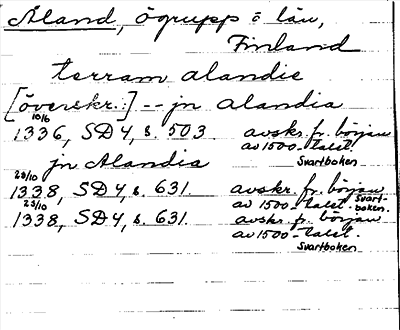 Åland, ögrupp o län,
Finland
terram alandie
[överskr.:] -- jn alandia
10/6
1336, SD 4, s. 503. avskr. fr. början
av 1500-talet.
Svartboken
jn Alandia
23/10
1338, SD 4, s. 631. avskr. fr. början
av 1500-talet. Svart-
boken.
23/10
1338, SD 4, s. 631. avskr. fr. början
av 1500-talet.
Svartboken